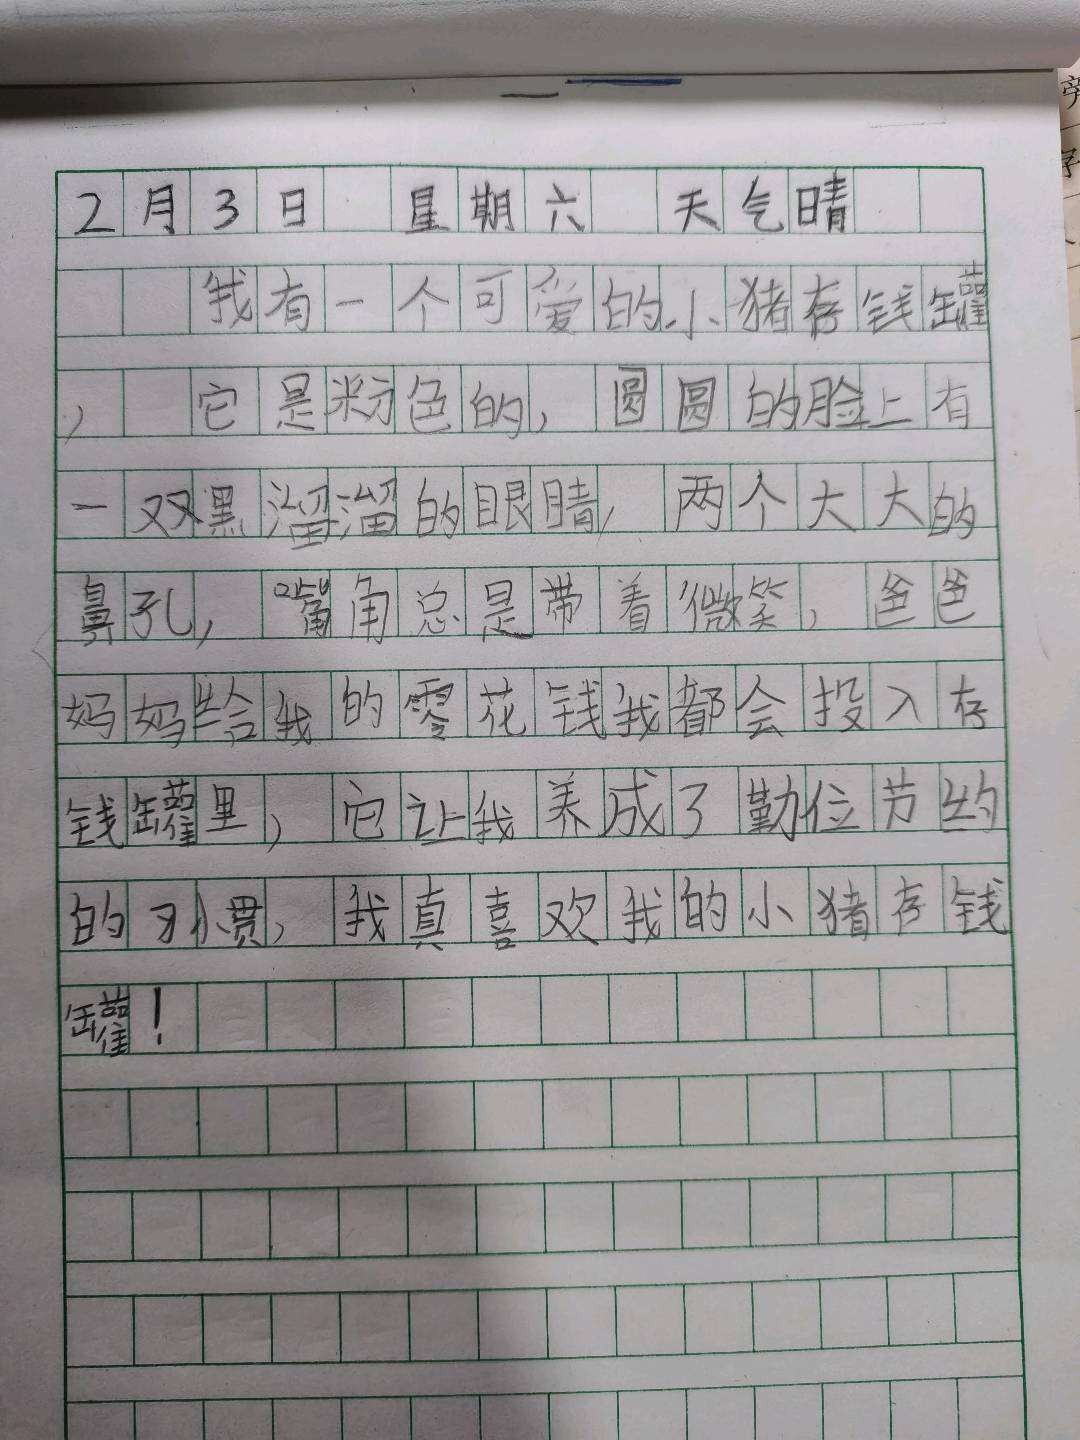 2月3日 星期六 天气晴
我有一个可爱的小猪存钱罐
，它是粉色的，圆圆的脸上有
一双黑溜溜的眼睛，两个大大的
鼻孔，嘴角总是带着微笑，爸爸
妈妈给我的零花钱我都会投入存
钱罐里，它让我养成了勤位节约
的习惯，我真喜欢我的小猪存钱
罐！